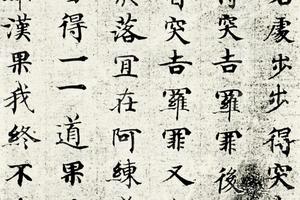 處步步得突
得突吉羅罪後
突吉羅罪又
落冝在阿練
得一一道果
漢果我終不